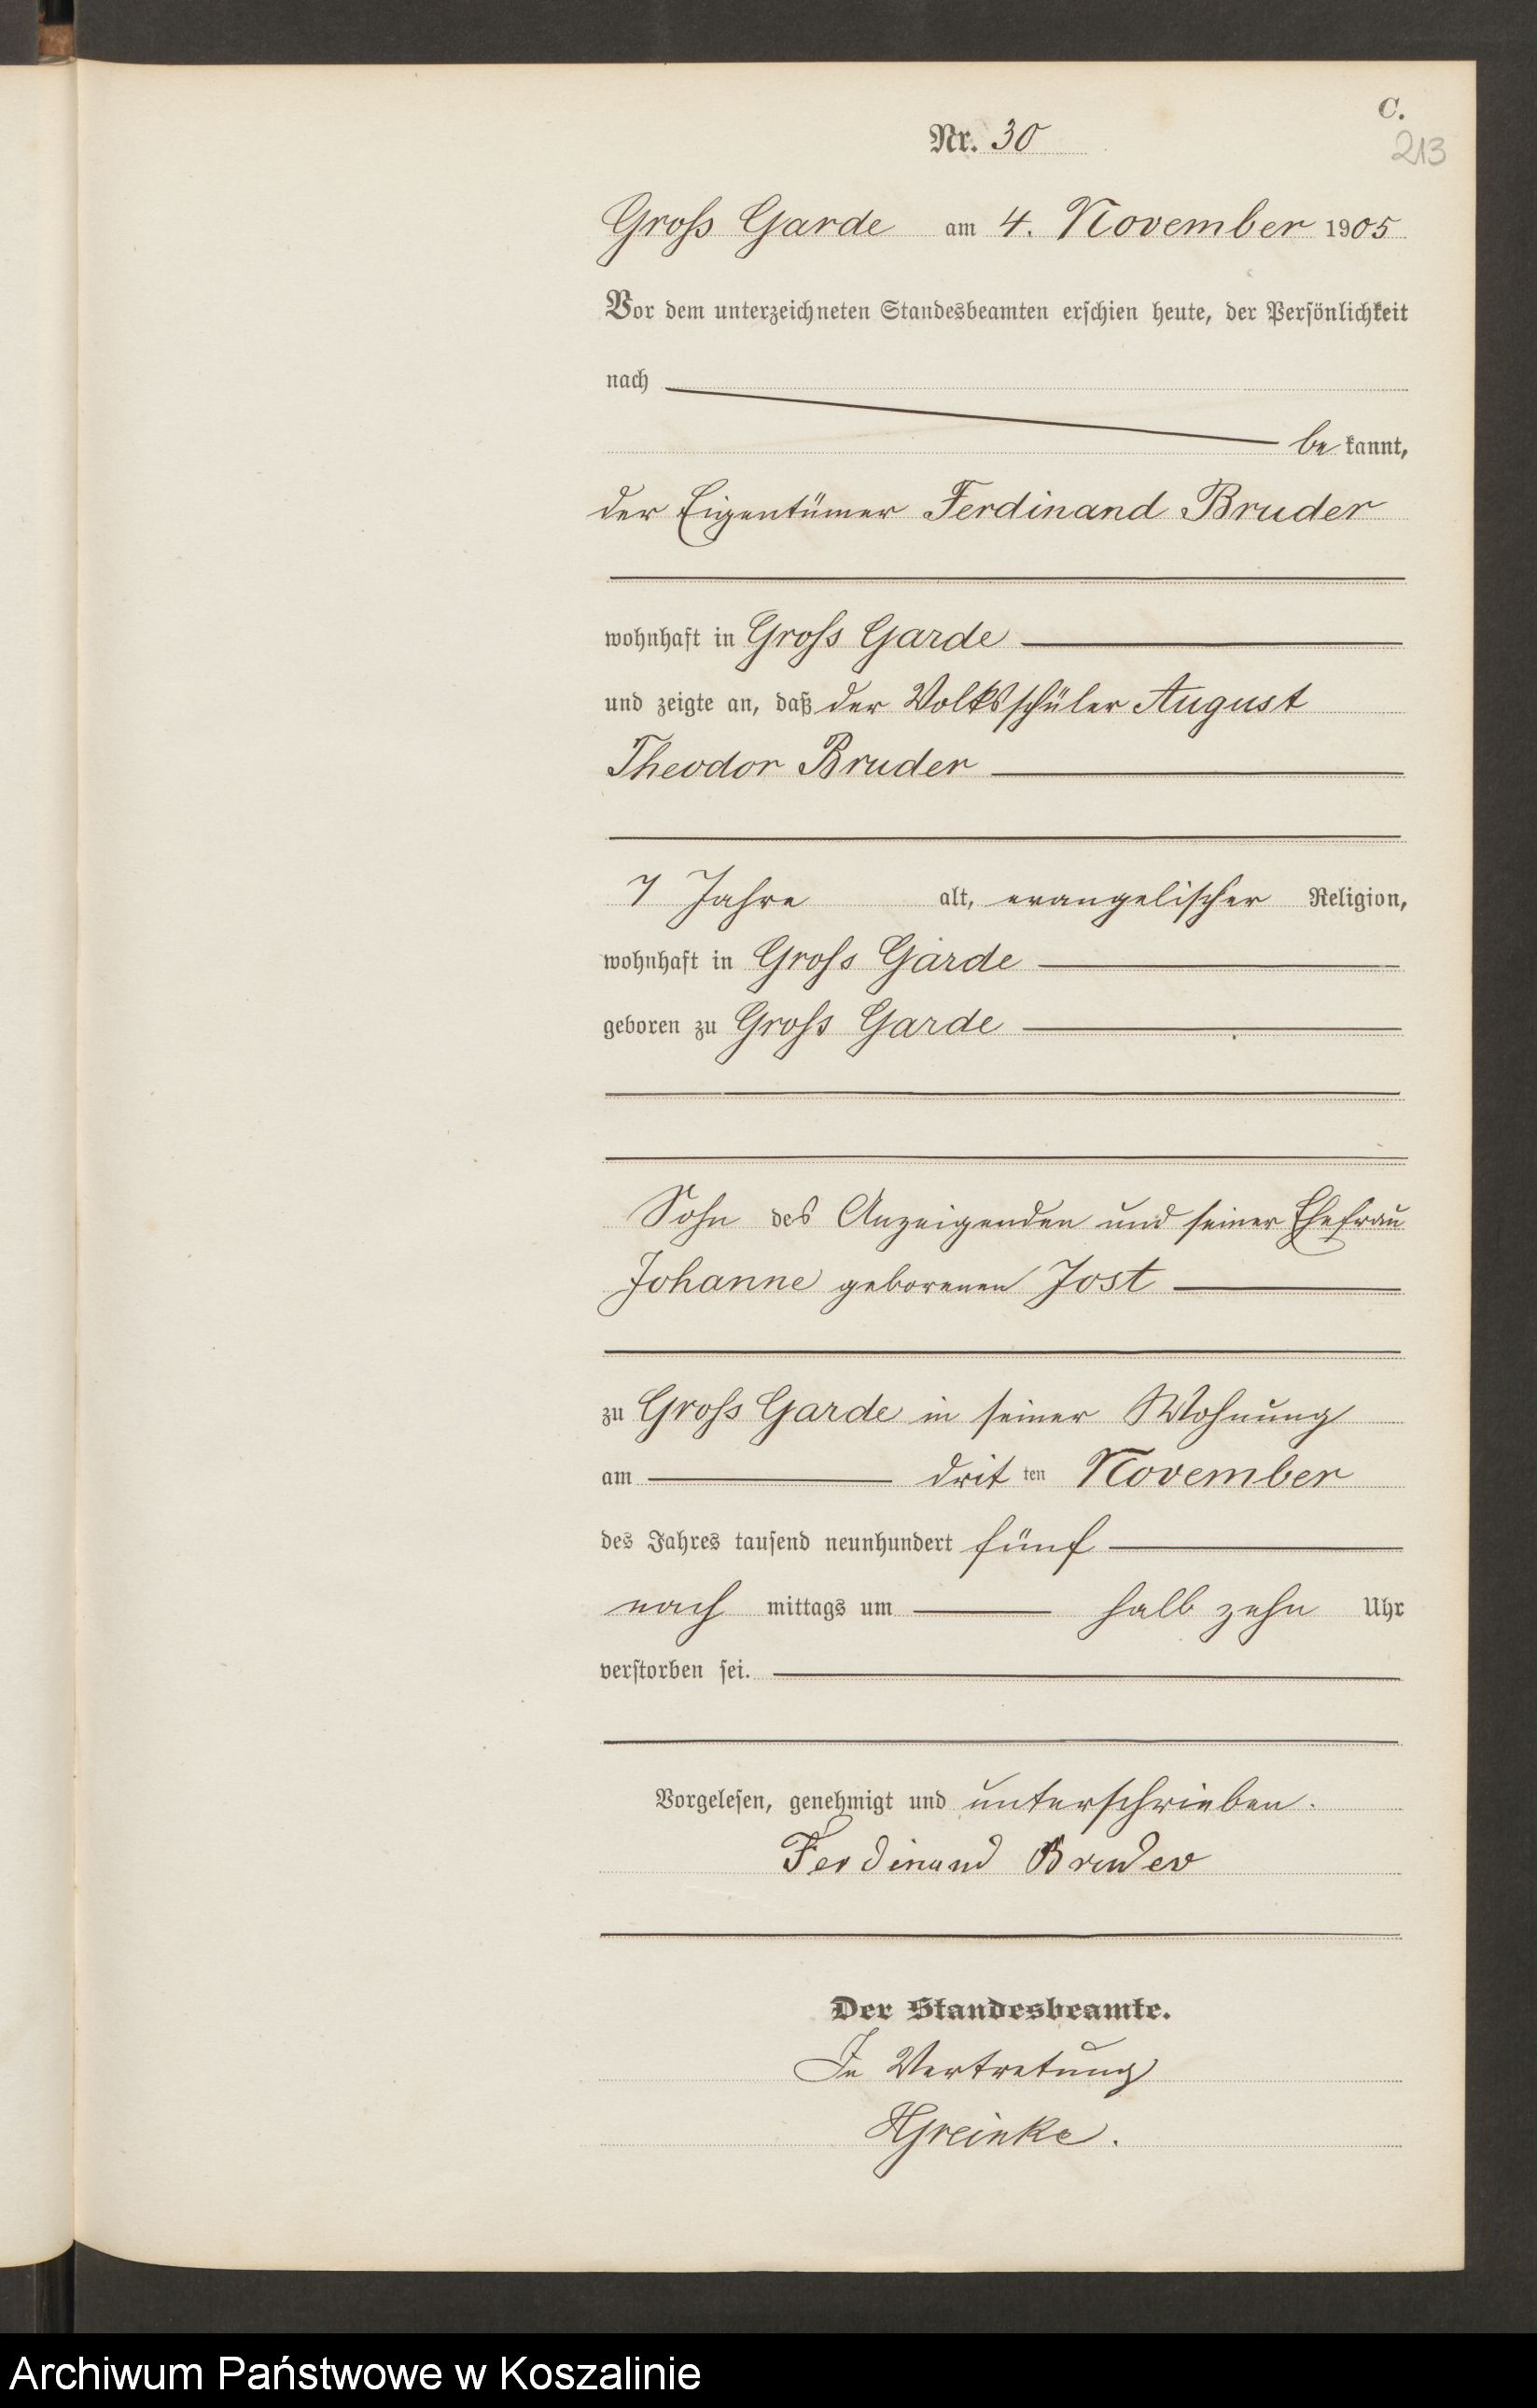 C.
213
Nr. 30
Gross Garde am 4. November 1905
Vor dem unterzeichneten Standesbeamten erschien heute, der Persönlichkeit
nach
be kannt,
der Eigentümer Ferdinand Bruder
wohnhaft in Gross Garde
und zeigte an, daß der Volksschüler August
Theodor Bruder
7 Jahre alt, evangelischer Religion,
wohnhaft in Gross Garde
geboren zu Gross Garde
Sohn des Anzeigenden und seiner Ehefrau
Johanne geborenen Jost
zu Gross Garde in seiner Wohnung
am drit ten November
des Jahres tausend neunhundert fünf
nach mittags um halb zehn Uhr
verstorben sei.
Vorgelesen, genehmigt und unterschrieben.
Ferdinand Bruder
Der Standesbeamte.
In Vertretung
HGreinke.
Archiwum Państwowe w Koszalinie